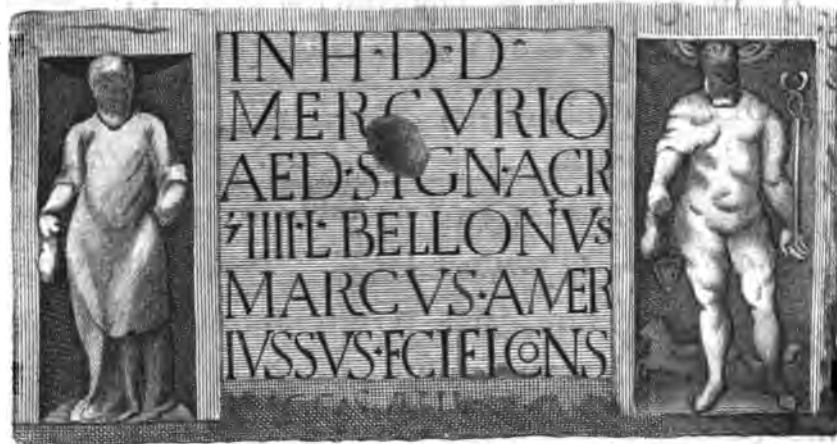 IN H·D·D·
MERCVRIO
AED·SIGN·ACR
IIII·L·BELLONVS
MARCVS·AMER
IVSSVS·FCIEICONS